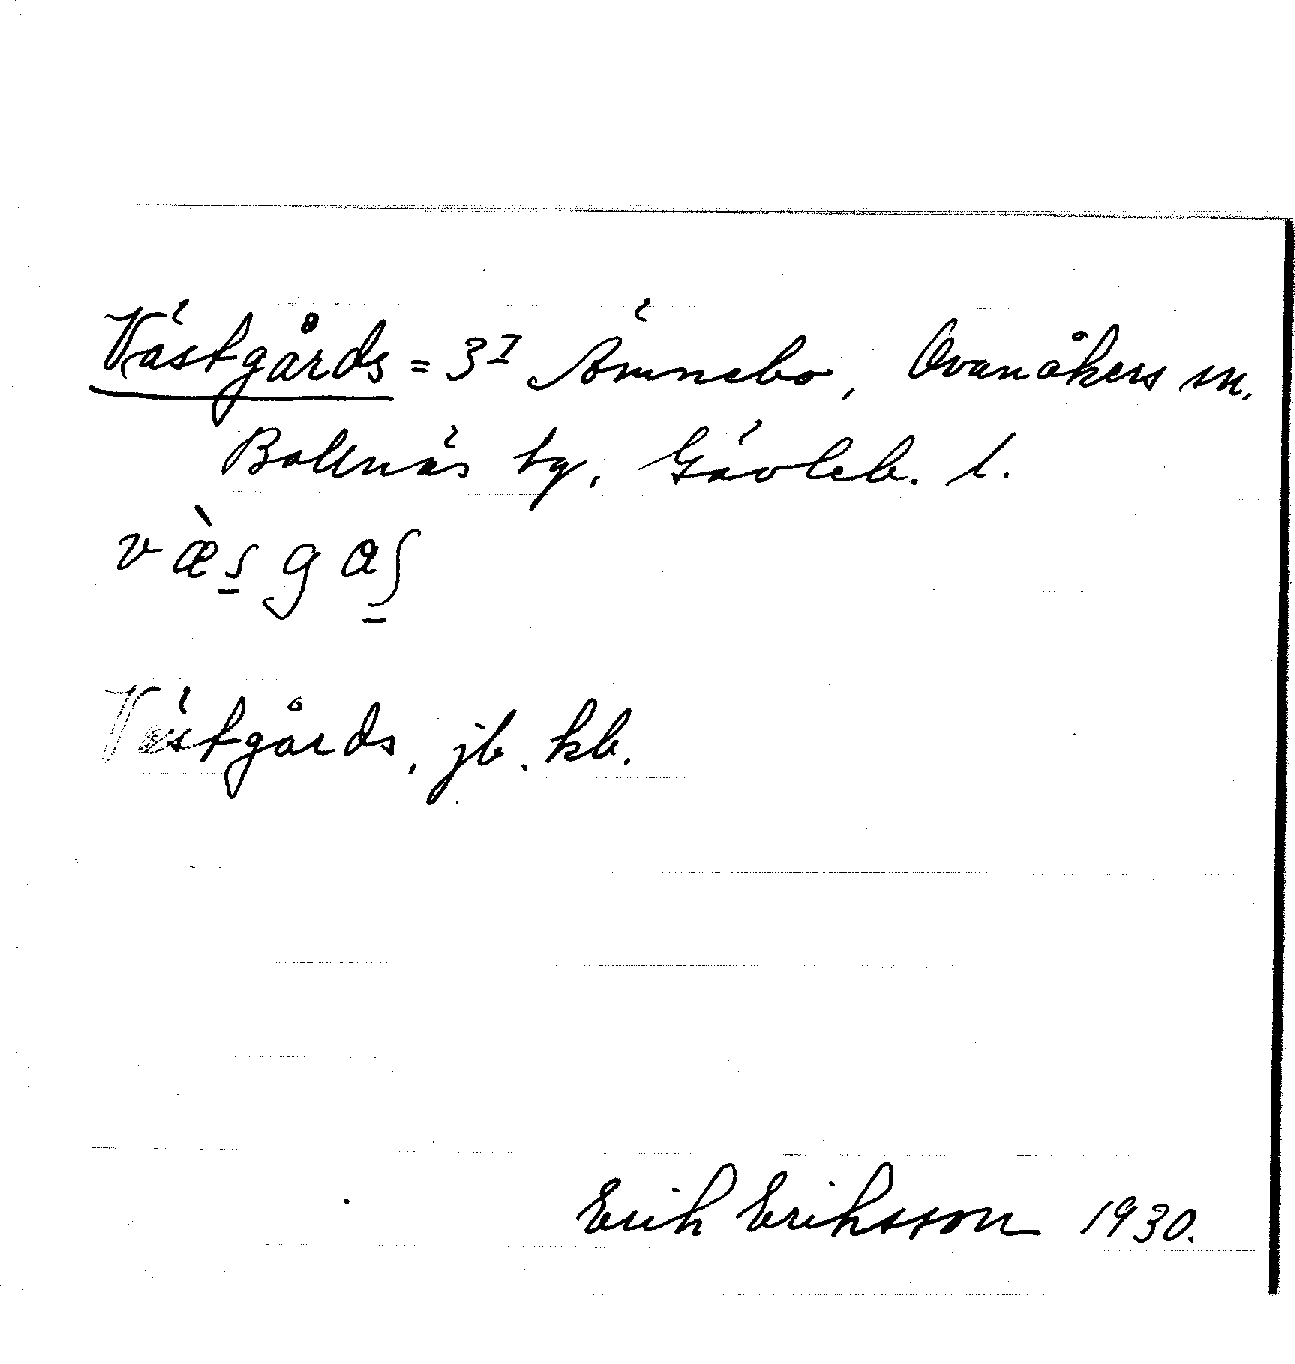 Västgårds = 3I Ämnebo, Ovanåkers sn.
Bollnäs tg, Gävleb. l.
væ̀s̠gas̠
Västgårds, jb. kb.
Erik Eriksson 1930.